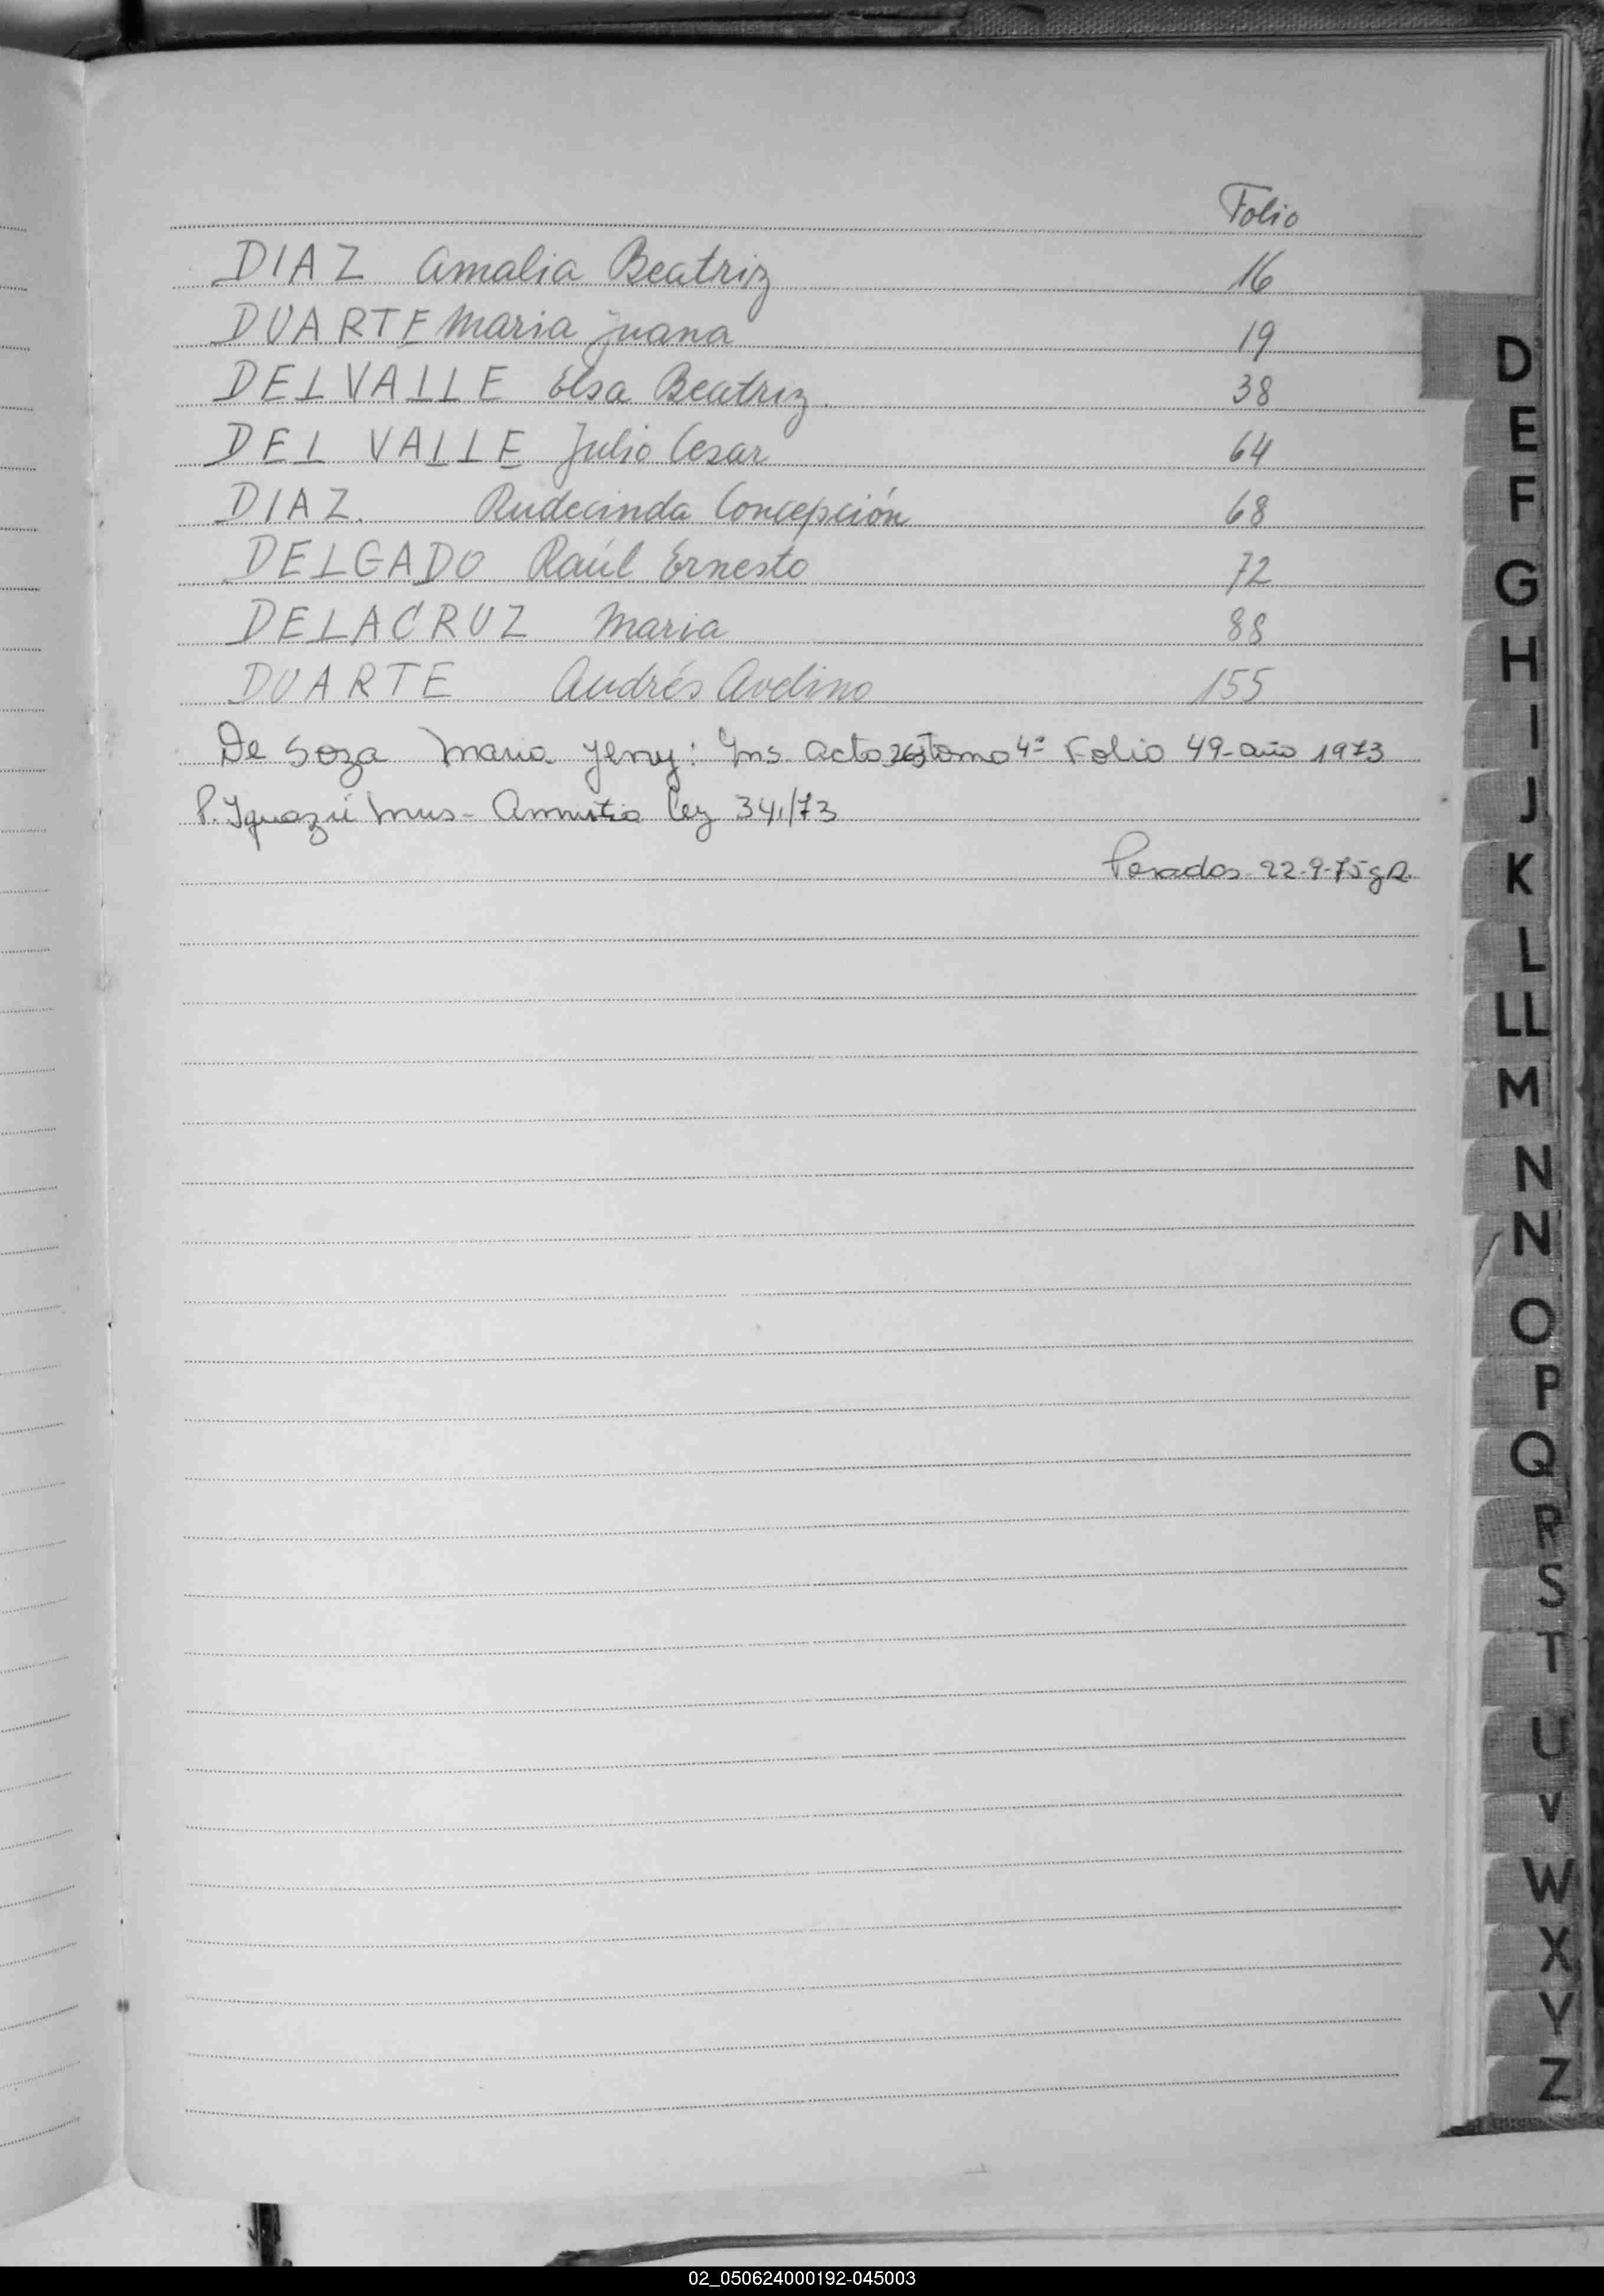 Folio
DIAZ Amalia Beatriz 16
DUARTE Maria Juana 19
DELVALLE Elsa Beatriz 38
DEL VALLE Julio Cesar 64
DIAZ. Rudecinda Concepción 68
DELGADO Raúl Ernesto 72
DELACRUZ Maria 88
DUARTE Andrés Avelino 155
De Soza Maria Jeny: Ins. Acta 263 tomo 4º Folio 49-año 1973
P. Iguazú Mnes- Amnistia ley 341/73
Posadas-22-9-75
D
E
F
G
H
I
J
K
L
LL
M
N
N
O
P
Q
R
S
T
U
V
W
X
Y
Z
02_050624000192-045003